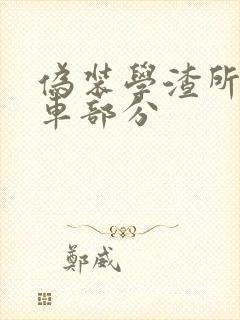 偽裝學渣所
車部分
鄭威